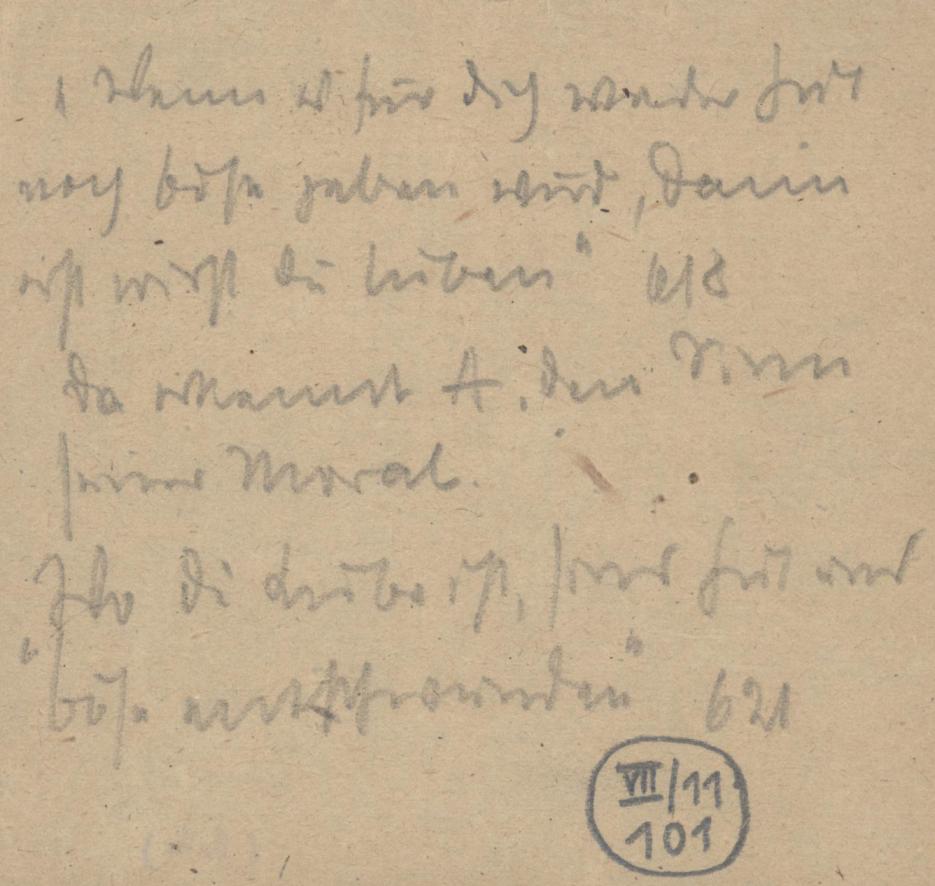 „Wenn es für dich weder Gut
noch böse geben wird, dann
erst wirst du lieben“ 618
Da erkennt A. den Sinn
seiner Moral.
„Wo die Liebe ist, sind Gut und
böse entschwunden“ 621
VII/11
101